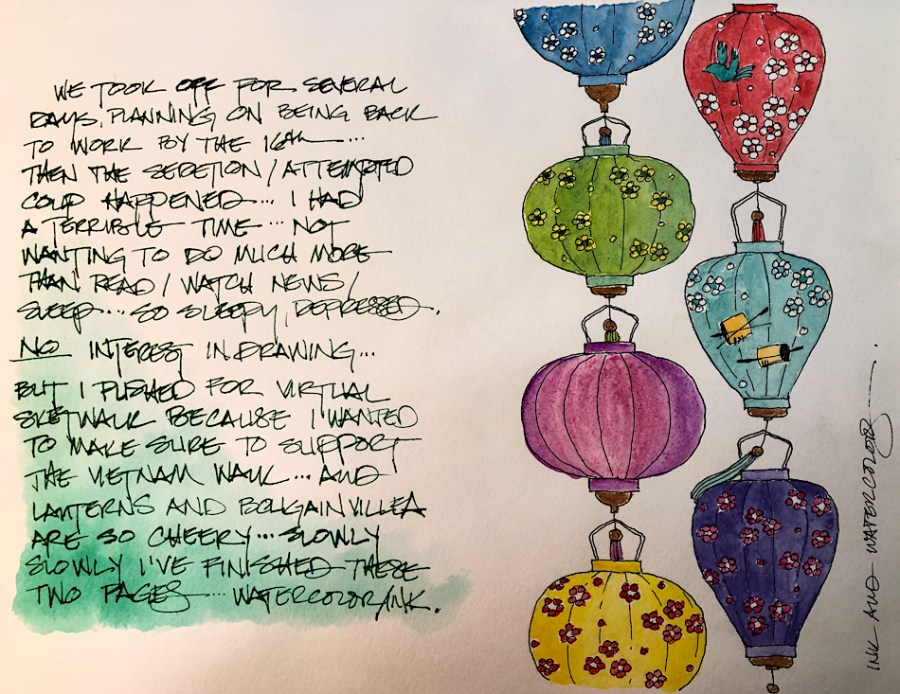 WE TOOK OFF FOR SEVERAL
DAYS, PLANNING ON BEING BACK
TO WORK BY THE 16th...
THEN THE SEDETION/ATTEMPTED
COUP HAPPENED... I HAD
A TERRIBLE TIME... NOT
WANTING TO DO MUCH MORE
THAN READ/WATCH NEWS/
SLEEP... SO SLEEPY, DEPRESSED.
NO INTEREST IN DRAWING...
BUT I PUSHED FOR VIRTUAL
SKETWALK BECAUSE I WANTED
TO MAKE SURE TO SUPPORT
THE VIETNAM WALK... AND
LANTERNS AND BOUGAINVILLEA
ARE SO CHEERY... SLOWLY
SLOWLY I'VE FINISHED THESE
TWO PAGES... WATERCOLOR/INK.
INK AND WATERCOLORS.